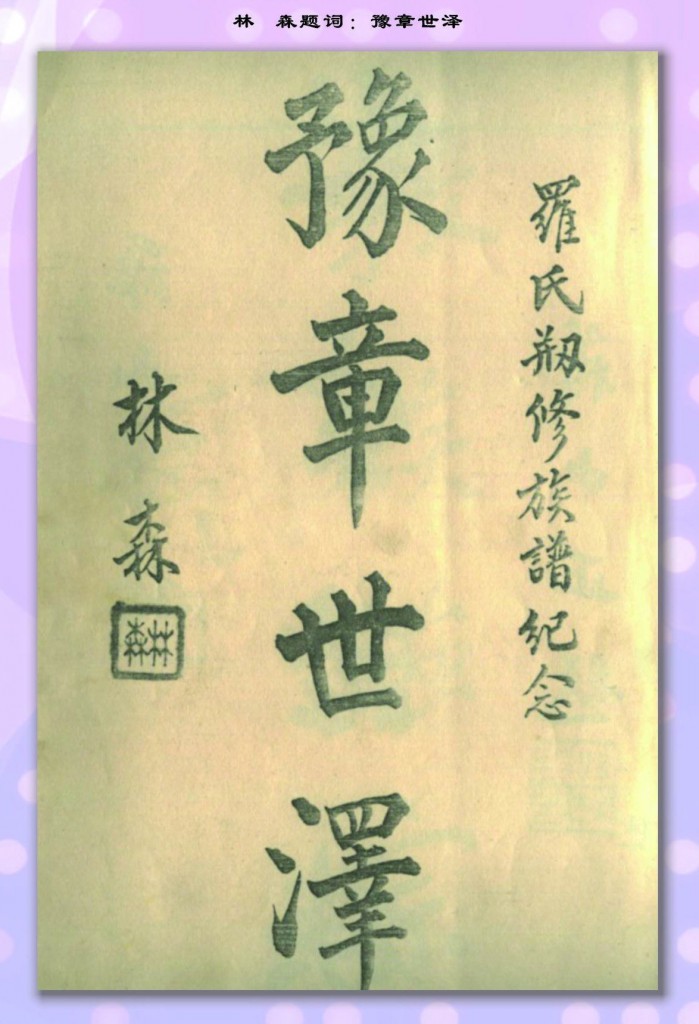 林 森题词：豫章世泽
羅氏剏修族譜紀念
豫章世澤
林森
林森